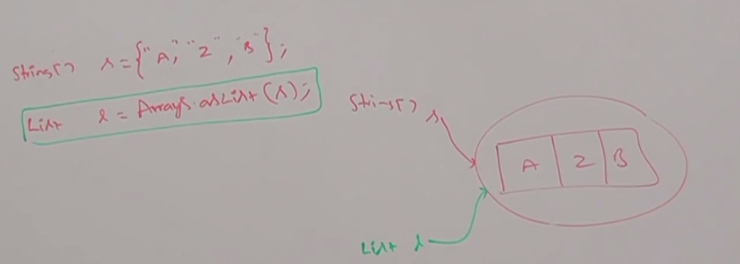 String[] s = {"A", "Z", "B"};
List l = Arrays.asList(s);
String[] s
A Z B
List l